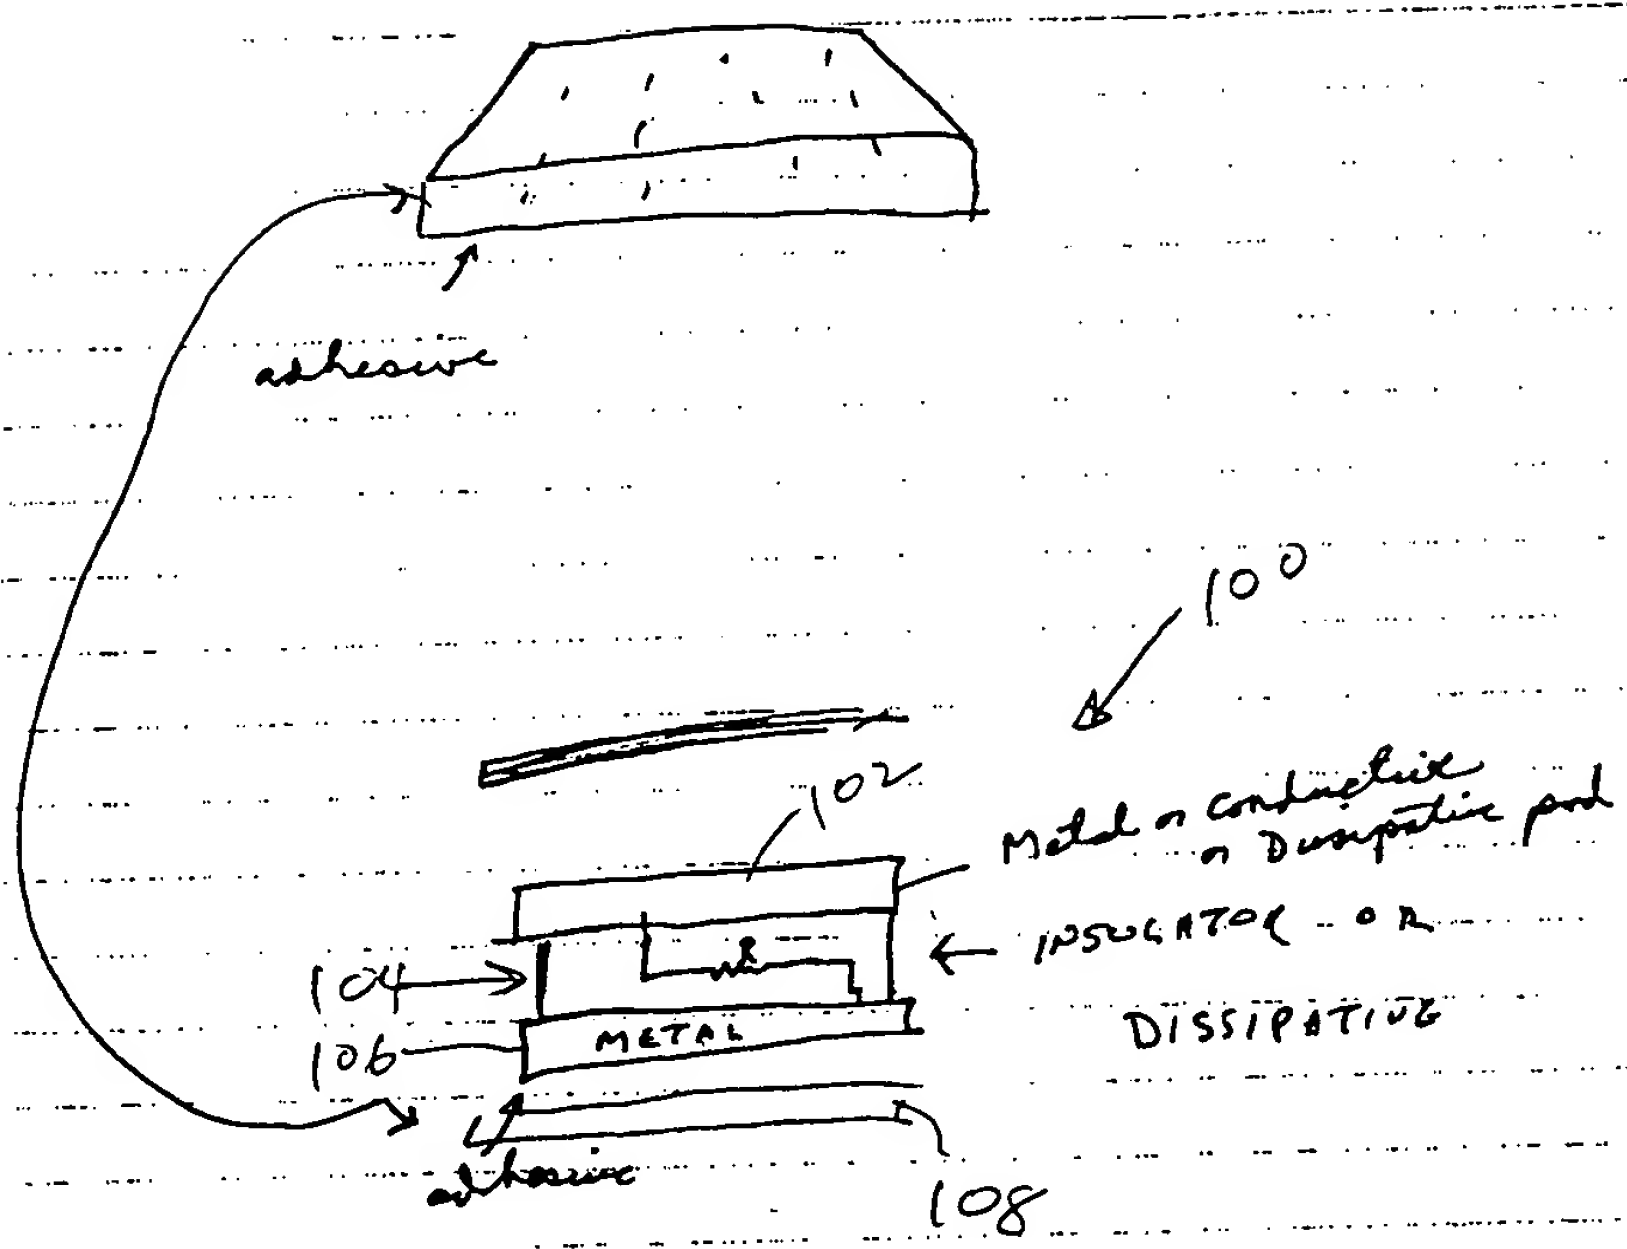 adhesive
100
102
Metal or conductive
or Dissipative
INSULATOR OR
DISSIPATIVE
104
R
106
METAL
adhesive
108